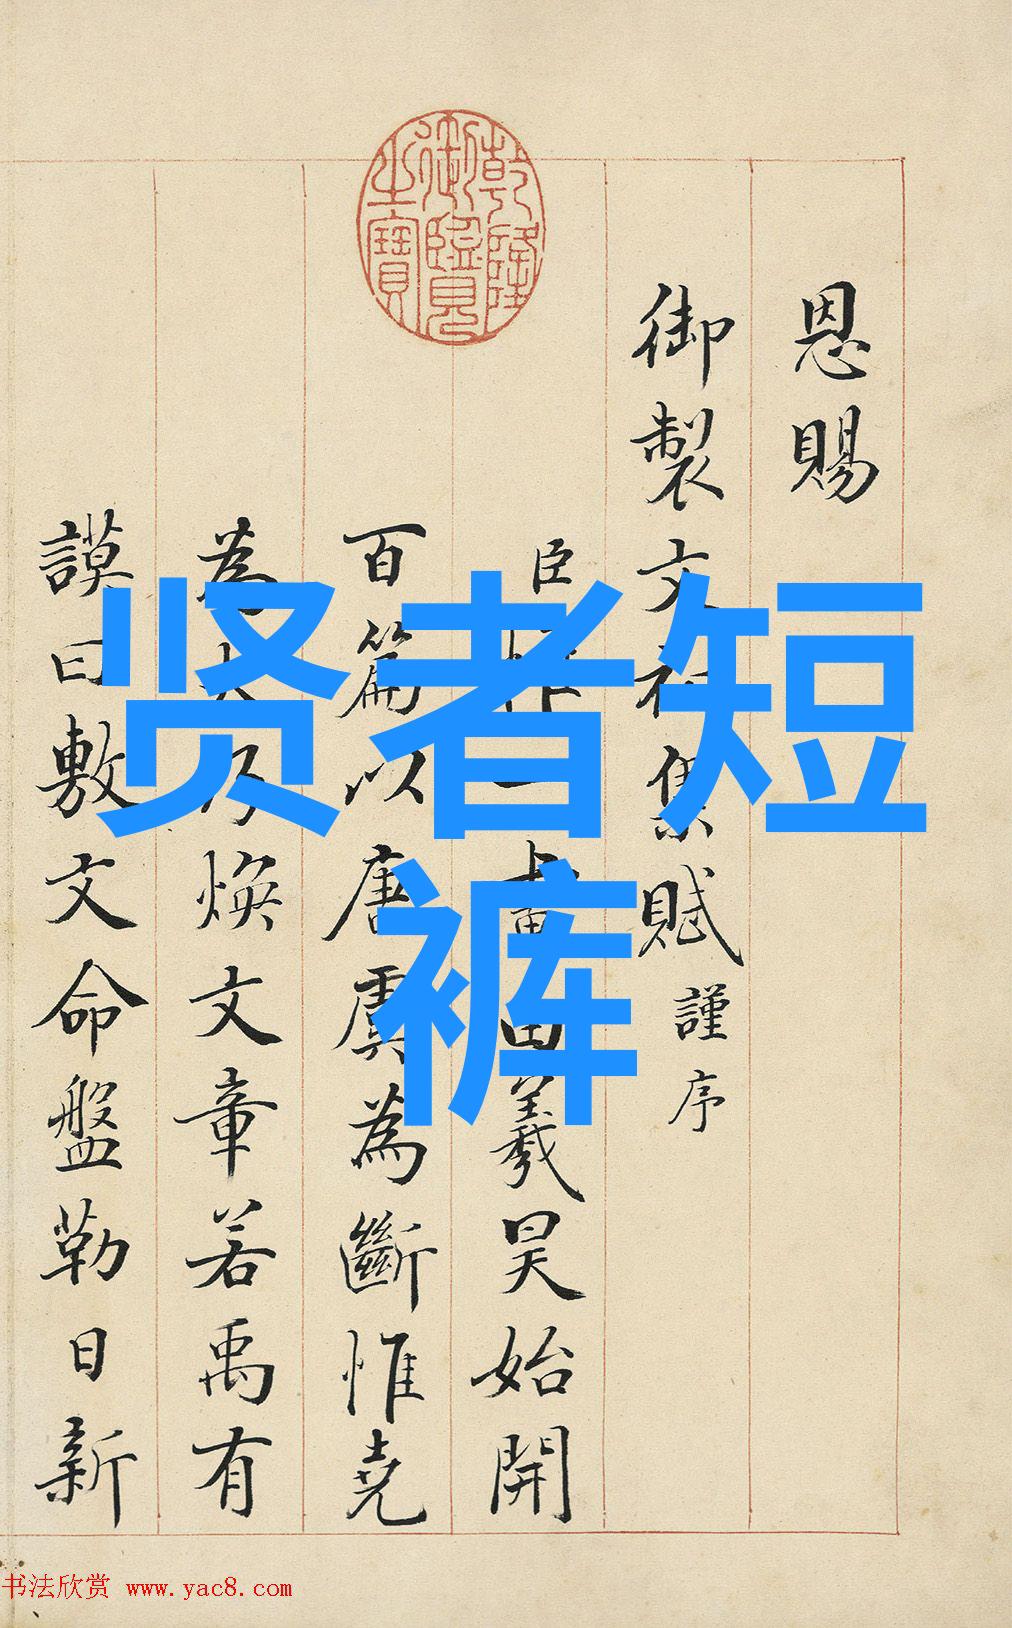 乾隆御覽之寶
恩賜
御製文初集賦謹序
臣惟一畫羲昊始開
百篇以唐虞為斷惟堯
為大乃煥文章若禹有
謨曰敷文命盤勒日新
贤者短
裤
书法欣赏 www.yac8.com